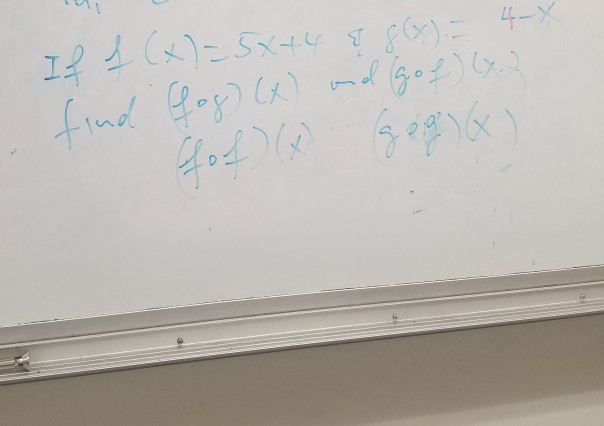 If f(x) = 5x+4 & g(x) = 4-x
find (fog)(x) and (gof)(x)
(fof)(x) (gog)(x)